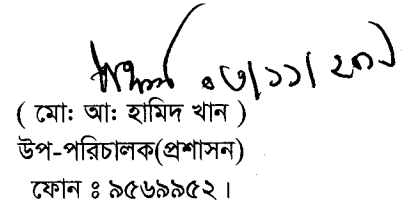 ০৩/১১/২০১
( মো: আ: হামিদ খান )
উপ-পরিচালক(প্রশাসন)
ফোন ঃ ৯৫৬৯৯৫২।